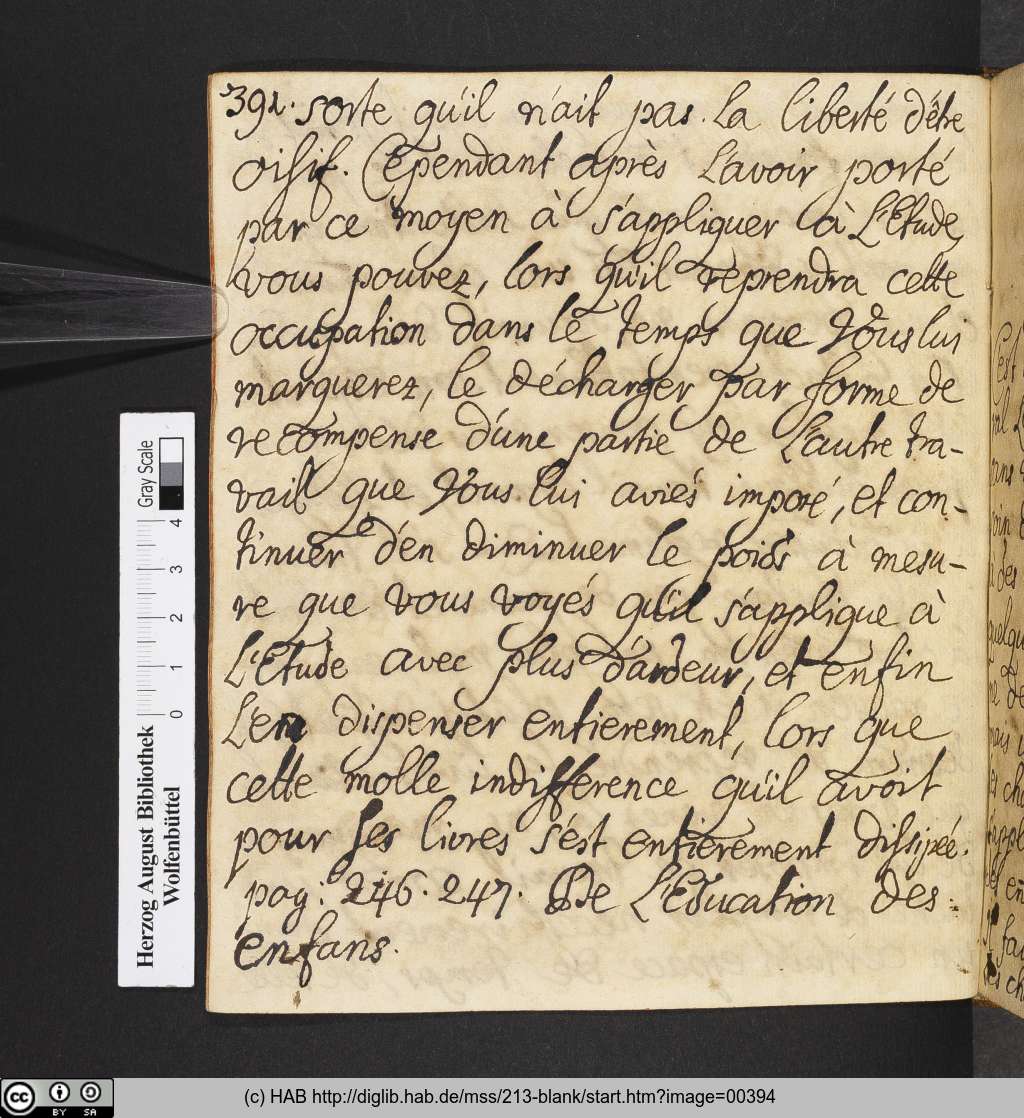 392. sorte qu'il n'ait pas la liberté d'être
oisif. Cependant après l'avoir porté
par ce moyen à s'appliquer à L'Etude,
vous pouvez, lors qu'il reprendra cette
occupation dans le temps que Vous lui
marquerez, le décharger par forme de
recompense d'une partie de l'autre tra-
vail que Vous lui aviés imposé, et con-
tinuer d'en diminuer le poids à mesu-
re que vous voyés qu'il s'applique à
L'Etude avec plus d'ardeur, et enfin
L'en dispenser entierement, lors que
cette molle indifference qu'il avoit
pour ses livres s'est entierement dissipée.
pag: 246. 247. De L'Education des
enfans.
Gray Scale
0 1 2 3 4
Herzog August Bibliothek
Wolfenbüttel
cc BY SA
(c) HAB http://diglib.hab.de/mss/213-blank/start.htm?image=00394